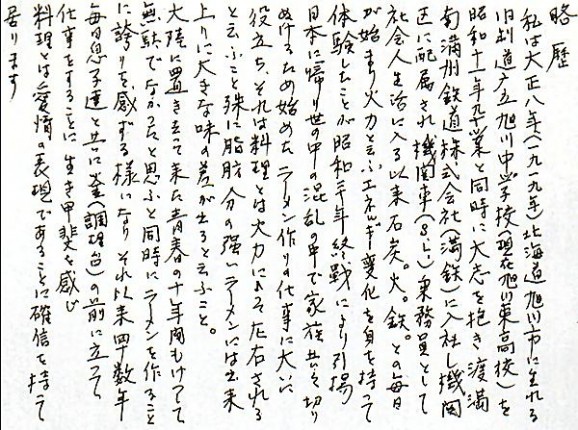 略歴
私は大正八年(一九一九年)北海道旭川市に生れる
旧制道庁立旭川中学校(現在旭川東高校)を
昭和十一年卒業と同時に大志を抱き渡満
南満州鉄道株式会社(満鉄)に入社し機関
区に配属され機関車(SL)乗務員として
社会人生活に入る以来石炭。火。鉄。との毎日
が始まり火力と云ふエネルギー変化を身を持って
体験したことが昭和二十年終戦により引揚
日本に帰り世の中の混乱の中で家族共々切り
ぬけるため始めたラーメン作りの仕事に大いに
役立ち、それは料理とは火力によって左右される
と云ふこと殊に脂肪分の強いラーメンには出来
上りに大きな味の差が出ると云ふこと。
大陸に置き去って来た青春の十年間もけっして
無駄でなかったと思ふと同時にラーメンを作ること
に誇りを感ずる様になりそれ以来四十数年
毎日息子達と共に釜(調理台)の前に立って
仕事をすることに生き甲斐を感じ
料理とは愛情の表現であることに確信を持って
居ります